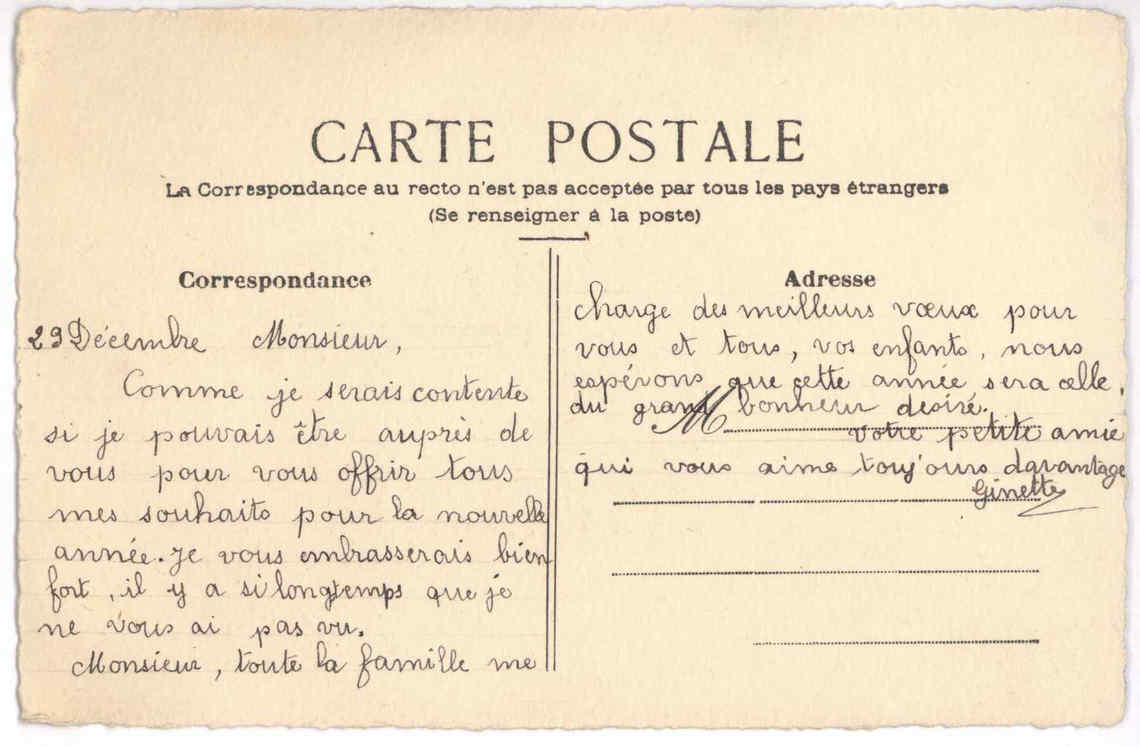 CARTE POSTALE
La Correspondance au recto n'est pas acceptée par tous les pays étrangers
(Se renseigner à la poste)
Correspondance
29 Décembre Monsieur,
Comme je serais contente
si je pouvais être auprès de
vous pour vous offrir tous
mes souhaits pour la nouvelle
année. Je vous embrasserais bien
fort, il y a si longtemps que je
ne vous ai pas vu.
Monsieur, toute la famille me
Adresse
charge des meilleurs vœux pour
vous et tous, vos enfants, nous
espérons que cette année sera celle
du grand bonheur desiré.
M
votre petite amie
qui vous aime touj'ours davantage
Ginette